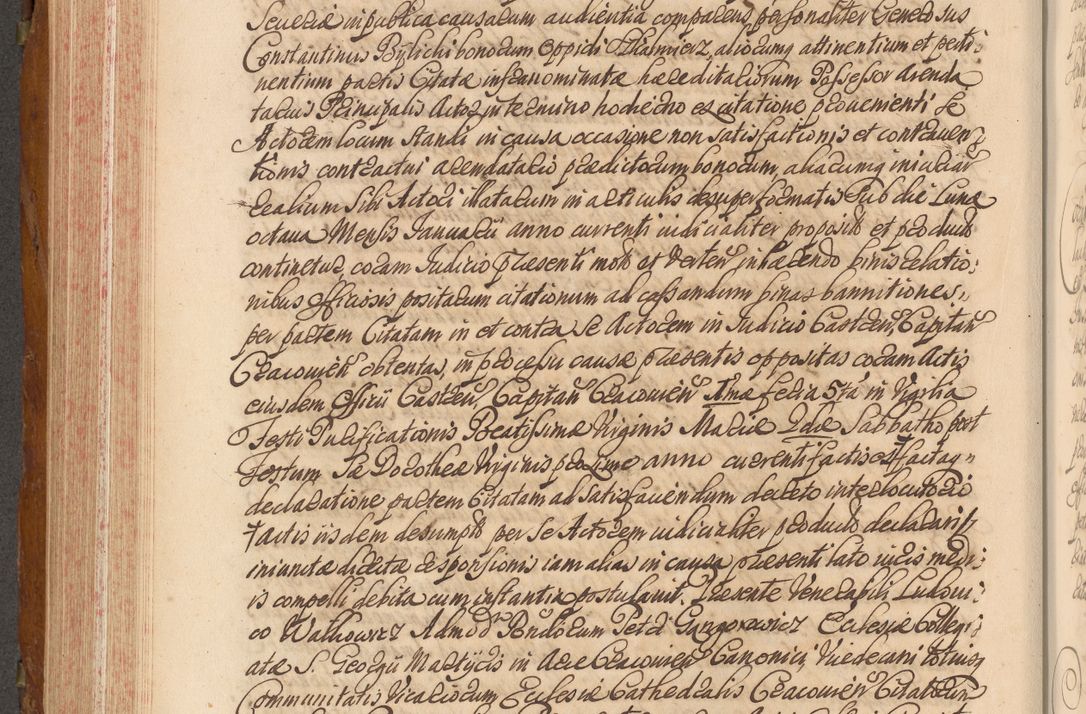 Severiæ in publica causarum audientia comparens personaliter Generosus
Constantinus Bylicki bonorum oppidi aliorumq; attinentium et perti:
nentium partis Citatæ infranominatæ hæreditariorum Possessor Arenda
tarius Principalis Actor in termino hodierno ex citatione proveniente se
Actorem locum standi in causa occasione non satisfactionis et contraven
tionis contractui arendatario prædictorum bonorum, aliarumq; iniuriar
realium Sibi Actori illatarum in articulis desuper formatis Sub die Lunæ
octava Mensis Januarii anno currenti iudicialiter proposit et product
continetur, coram Judicio præsenti mot et verten inhærendo binis relatio:
nibus officiosis positarum citationum ad cassandum binas bannitiones,
per partem Citatam in et contra Se Actorem in Judicio Castren Capitan
Cracovien obtentas, in processu causæ præsentis oppositas coram Actis
eiusdem Officii Castren Capitan Cracovien feria 5ta in Vigilia
Festi Purificationis Beatissimæ Virginis Mariæ 2dæ Sabbatho post
Festum Sæ Dorotheæ Virginis proxime anno currenti factis et
declaratione partem Citatam ad satisfaciendum decreto interlocutorio
factis iisdem desumpt per Se Actorem iudicialiter product declarari
iniunctæ directæ responsionis iam alias in causa præsenti lato iuris medi:
is compelli debita cum instantia postulavit. Præsente Venerabili Ludovi:
co Walkowicz Admod Rndorum Petri Ecclesiæ Collegi
atæ S. Georgii Martyris in Arce Cracovien Canonici, Vicedecani totius
Communitatis Vicariorum Ecclesiæ Cathedralis Cracovien Citatorum